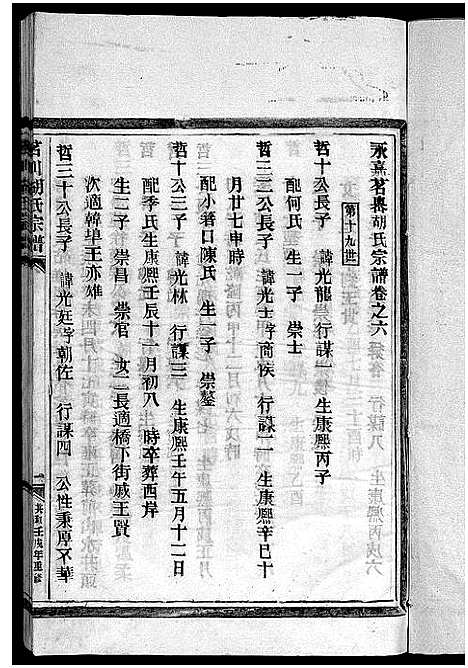 永嘉茗奧胡氏宗譜卷之六
第十九世
哲十公長子 諱光龍 行謀一 生康熙丙子
配何氏 生一子 崇士
哲三二公長子 諱光士字商侯 行謀二 生康熙辛巳十
月廿七申時
配小箬口陳氏 生一子 崇鏊
哲十公三子 諱光林 行謀三 生康熙壬午五月十二日
配季氏生康熙壬辰十一月初八 時卒葬西岸
生二子 崇昌 崇官 女二長適橋下街戚王賢
次適韓埠王亦雄
哲三十公長子 諱光廷字朝佐 行謀四 公性秉厚不華
茗川胡氏宗譜
一
壬戌年重修